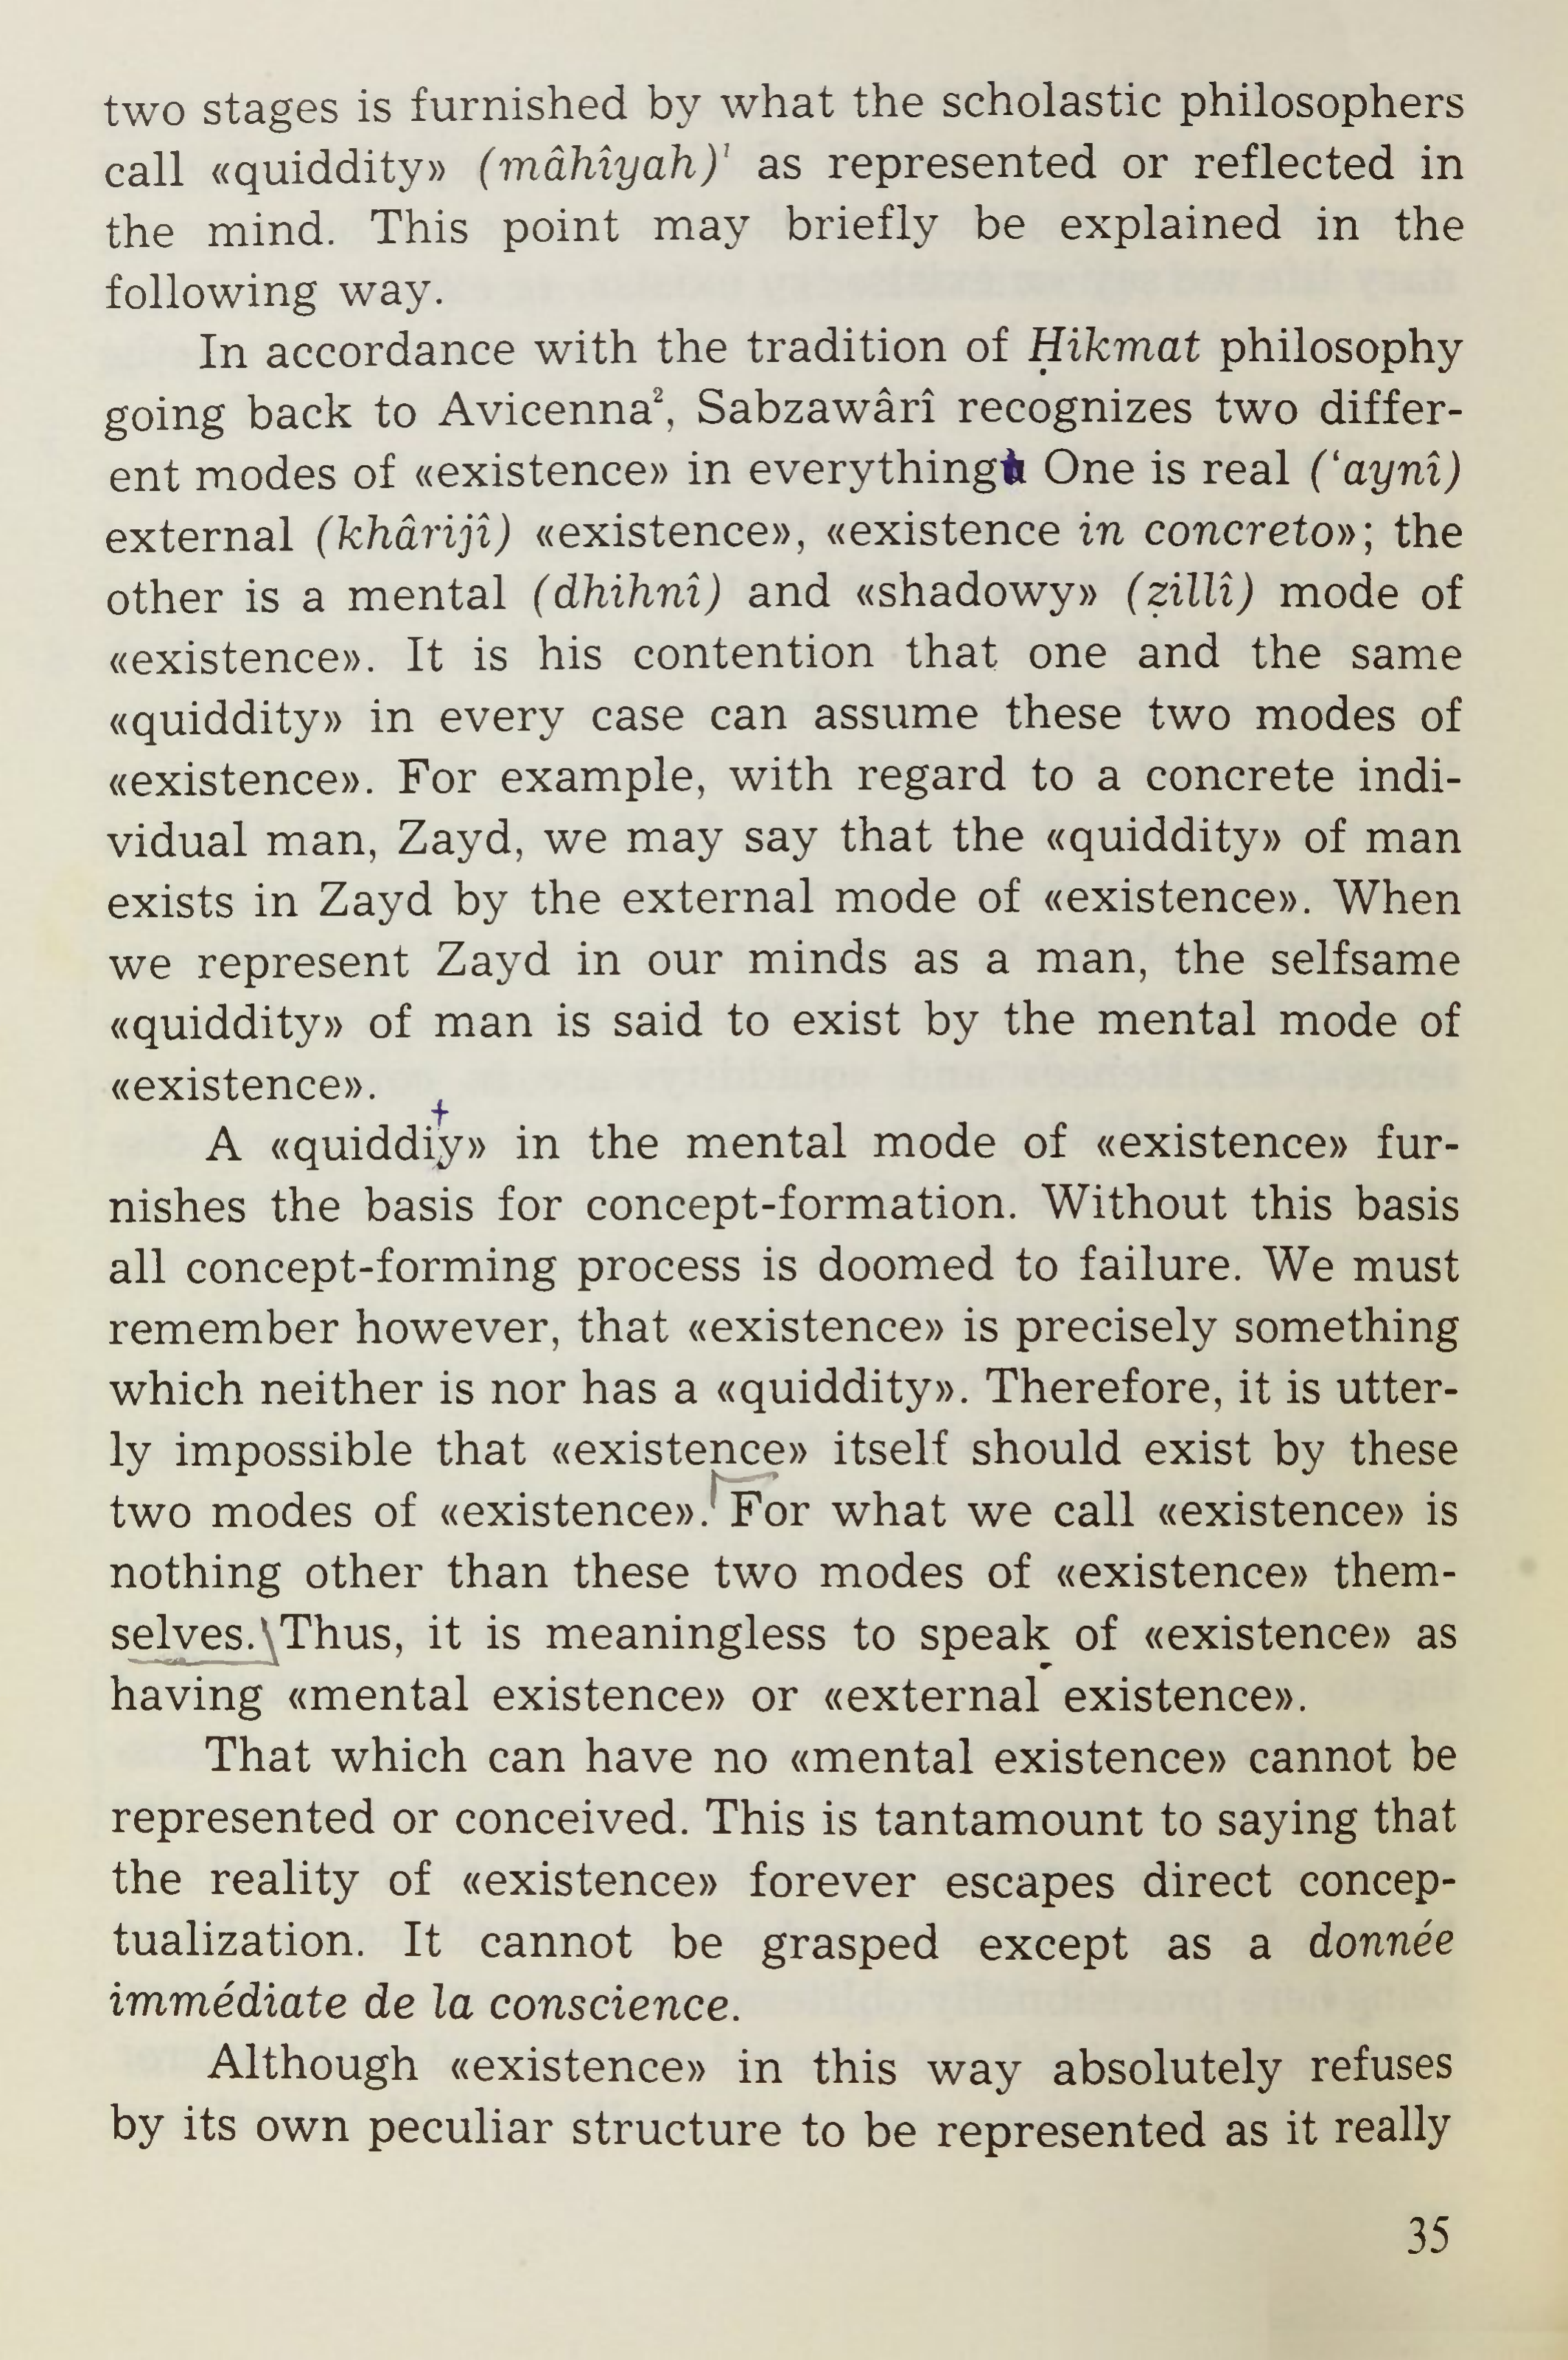 two stages is furnished by what the scholastic philosophers
call «quiddity» (mâhîyah)¹ as represented or reflected in
the mind. This point may briefly be explained in the
following way.
In accordance with the tradition of Ḥikmat philosophy
going back to Avicenna², Sabzawârî recognizes two differ-
ent modes of «existence» in everything One is real (‘aynî)
external (khârijî) «existence», «existence in concreto»; the
other is a mental (dhihnî) and «shadowy» (ẓillî) mode of
«existence». It is his contention that one and the same
«quiddity» in every case can assume these two modes of
«existence». For example, with regard to a concrete indi-
vidual man, Zayd, we may say that the «quiddity» of man
exists in Zayd by the external mode of «existence». When
we represent Zayd in our minds as a man, the selfsame
«quiddity» of man is said to exist by the mental mode of
«existence».
t
A «quiddiy» in the mental mode of «existence» fur-
nishes the basis for concept-formation. Without this basis
all concept-forming process is doomed to failure. We must
remember however, that «existence» is precisely something
which neither is nor has a «quiddity». Therefore, it is utter-
ly impossible that «existence» itself should exist by these
two modes of «existence». For what we call «existence» is
nothing other than these two modes of «existence» them-
selves. Thus, it is meaningless to speak of «existence» as
having «mental existence» or «external existence».
That which can have no «mental existence» cannot be
represented or conceived. This is tantamount to saying that
the reality of «existence» forever escapes direct concep-
tualization. It cannot be grasped except as a donnée
immédiate de la conscience.
Although «existence» in this way absolutely refuses
by its own peculiar structure to be represented as it really
35